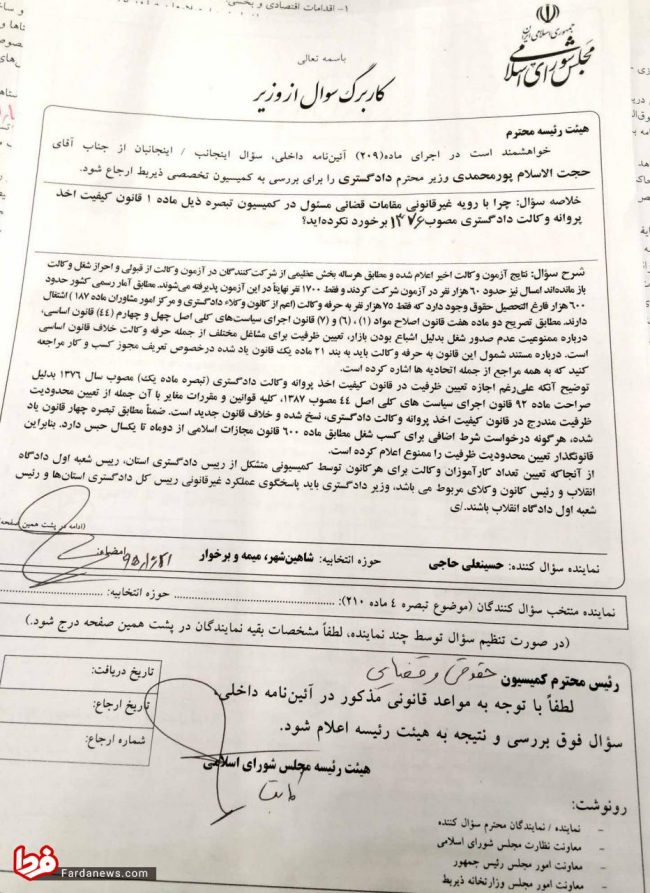 ۱- اقدامات اقتصادی و بخشی:
جمهوری اسلامی ایران
مجلس شورای اسلامی
باسمه تعالی
کاربرگ سوال از وزیر
هیئت رئیسه محترم
خواهشمند است در اجرای ماده(۲۰۹) آئین‌نامه داخلی، سؤال اینجانب / اینجانبان از جناب آقای
حجت الاسلام پورمحمدی وزیر محترم دادگستری را برای بررسی به کمیسیون تخصصی ذیربط ارجاع شود.
خلاصه سؤال: چرا با رویه غیرقانونی مقامات قضائی مسئول در کمیسیون تبصره ذیل ماده ۱ قانون کیفیت اخذ
پروانه وکالت دادگستری مصوب ۱۳۷۶ برخورد نکرده‌اید؟
شرح سؤال: نتایج آزمون وکالت اخیر اعلام شده و مطابق هرساله بخش عظیمی از شرکت کنندگان در آزمون وکالت از قبولی و احراز شغل وکالت
بازمانده‌اند امسال نیز حدود ۶۰ هزار نفر در آزمون شرکت کردند و فقط ۱۷۰۰ نفر نهایتاً در این آزمون پذیرفته می‌شوند. مطابق آمار رسمی کشور حدود
۶۰۰ هزار فارغ التحصیل حقوق وجود دارد که فقط ۷۵ هزار نفر به حرفه وکالت (اعم از کانون وکلاء دادگستری و مرکز امور مشاوران ماده ۱۸۷ ) اشتغال
دارند. مطابق تصریح دو ماده هفت قانون اصلاح مواد (۱) ، (۶) و (۷) قانون اجرای سیاست‌های کلی اصل چهل و چهارم (۴۴) قانون اساسی،
درباره ممنوعیت عدم صدور شغل بدلیل اشباع بودن بازار، تعیین ظرفیت برای مشاغل مختلف از جمله حرفه وکالت خلاف قانون اساسی
است. درباره مستند شمول این قانون به حرفه وکالت باید به بند ۲۱ ماده یک قانون یاد شده درخصوص تعریف مجوز کسب و کار مراجعه
کنید که به همه مراجع از جمله اتحادیه ها اشاره کرده است.
توضیح آنکه علی‌رغم اجازه تعیین ظرفیت در قانون کیفیت اخذ پروانه وکالت دادگستری (تبصره ماده یک) مصوب سال ۱۳۷۶ بدلیل
صراحت ماده ۹۲ قانون اجرای سیاست های کلی اصل ۴۴ مصوب ۱۳۸۷، کلیه قوانین و مقررات مغایر با آن جمله از تعیین محدودیت
ظرفیت مندرج در قانون کیفیت اخذ پروانه وکالت دادگستری، نسخ شده و خلاف قانون جدید است. ضمناً مطابق تبصره چهار قانون یاد
شده، هرگونه درخواست شرط اضافی برای کسب شغل مطابق ماده ۶۰۰ قانون مجازات اسلامی از دوماه تا یکسال حبس دارد. بنابراین
قانونگذار تعیین محدودیت ظرفیت را ممنوع اعلام کرده است.
از آنجاکه تعیین تعداد کارآموزان وکالت برای هرکانون توسط کمیسیونی متشکل از رییس دادگستری استان، رییس شعبه اول دادگاه
انقلاب و رئیس کانون وکلای مربوط می باشد، وزیر دادگستری باید پاسخگوی عملکرد غیرقانونی رییس کل دادگستری استان‌ها و رئیس
شعبه اول دادگاه انقلاب باشند./ی
(ادامه در پشت همین صفحه)
نماینده سؤال کننده: حسینعلی حاجی حوزه انتخابیه: شاهین‌شهر، میمه و برخوار امضاء
نماینده منتخب سؤال کنندگان (موضوع تبصره ٤ ماده ۲۱۰): حوزه انتخابیه:
(در صورت تنظیم سؤال توسط چند نماینده، لطفاً مشخصات بقیه نمایندگان در پشت همین صفحه درج شود.)
رئیس محترم کمیسیون حقوقی و قضایی
لطفاً با توجه به مواعد قانونی مذکور در آئین‌نامه داخلی،
سؤال فوق بررسی و نتیجه به هیئت رئیسه اعلام شود.
هیئت رئیسه مجلس شورای اسلامی
تاریخ دریافت:
تاریخ ارجاع:
شماره ارجاع:
رونوشت:
- نماینده / نمایندگان محترم سؤال کننده
- معاونت نظارت مجلس شورای اسلامی
- معاونت امور مجلس رئیس جمهور
- معاونت امور مجلس وزارتخانه ذیربط
فردا
Fardanews.com